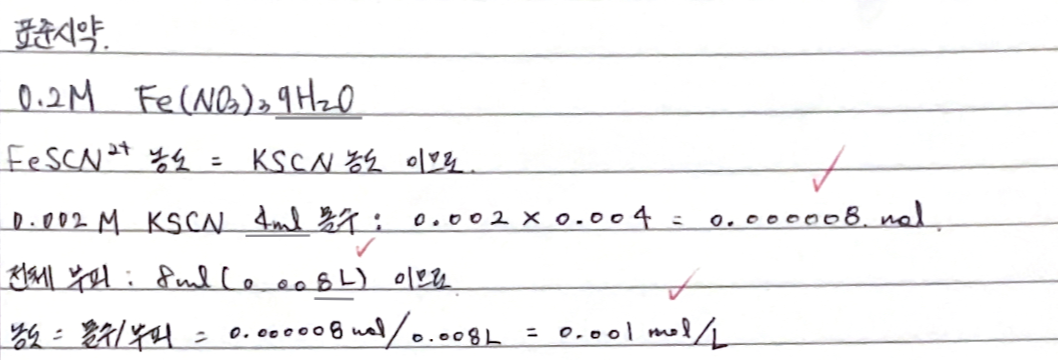 표준시약.
0.2M Fe(NO3)3 9H2O
FeSCN²⁺ 농도 = KSCN 농도 이므로.
0.002 M KSCN 4ml 몰수 : 0.002 × 0.004 = 0.000008. mol.
전체 부피 : 8ml (0.008L) 이므로
농도 = 몰수/부피 = 0.000008 mol/0.008L = 0.001 mol/L